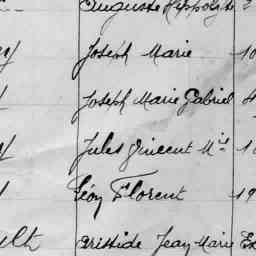 Auguste Hippolyte
Joseph Marie 10
Joseph Marie Gabriel 4
Jules Vincent Mie 10
Léon Florent 19
Aristide Jean Marie